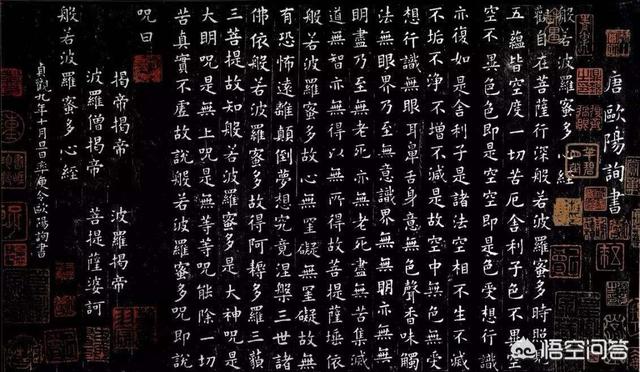 唐歐陽詢書
般若波羅蜜多心經
觀自在菩薩行深般若波羅蜜多時照見
五蘊皆空度一切苦厄舍利子色不異空
空不異色色即是空空即是色受想行識
亦復如是舍利子是諸法空相不生不滅
不垢不淨不增不減是故空中無色無受
想行識無眼耳鼻舌身意無色聲香味觸
法無眼界乃至無意識界無無明亦無無
明盡乃至無老死亦無老死盡無苦集滅
道無智亦無得以無所得故菩提薩埵依
般若波羅蜜多故心無罣礙無罣礙故無
有恐怖遠離顛倒夢想究竟涅槃三世諸
佛依般若波羅蜜多故得阿耨多羅三藐
三菩提故知般若波羅蜜多是大神呪是
大明呪是無上呪是無等等呪能除一切
苦真實不虛故說般若波羅蜜多呪即說
呪曰
揭帝揭帝 波羅揭帝
波羅僧揭帝 菩提薩婆訶
般若波羅蜜多心經
貞觀九年十月旦日率更令歐陽詢書
悟空问答